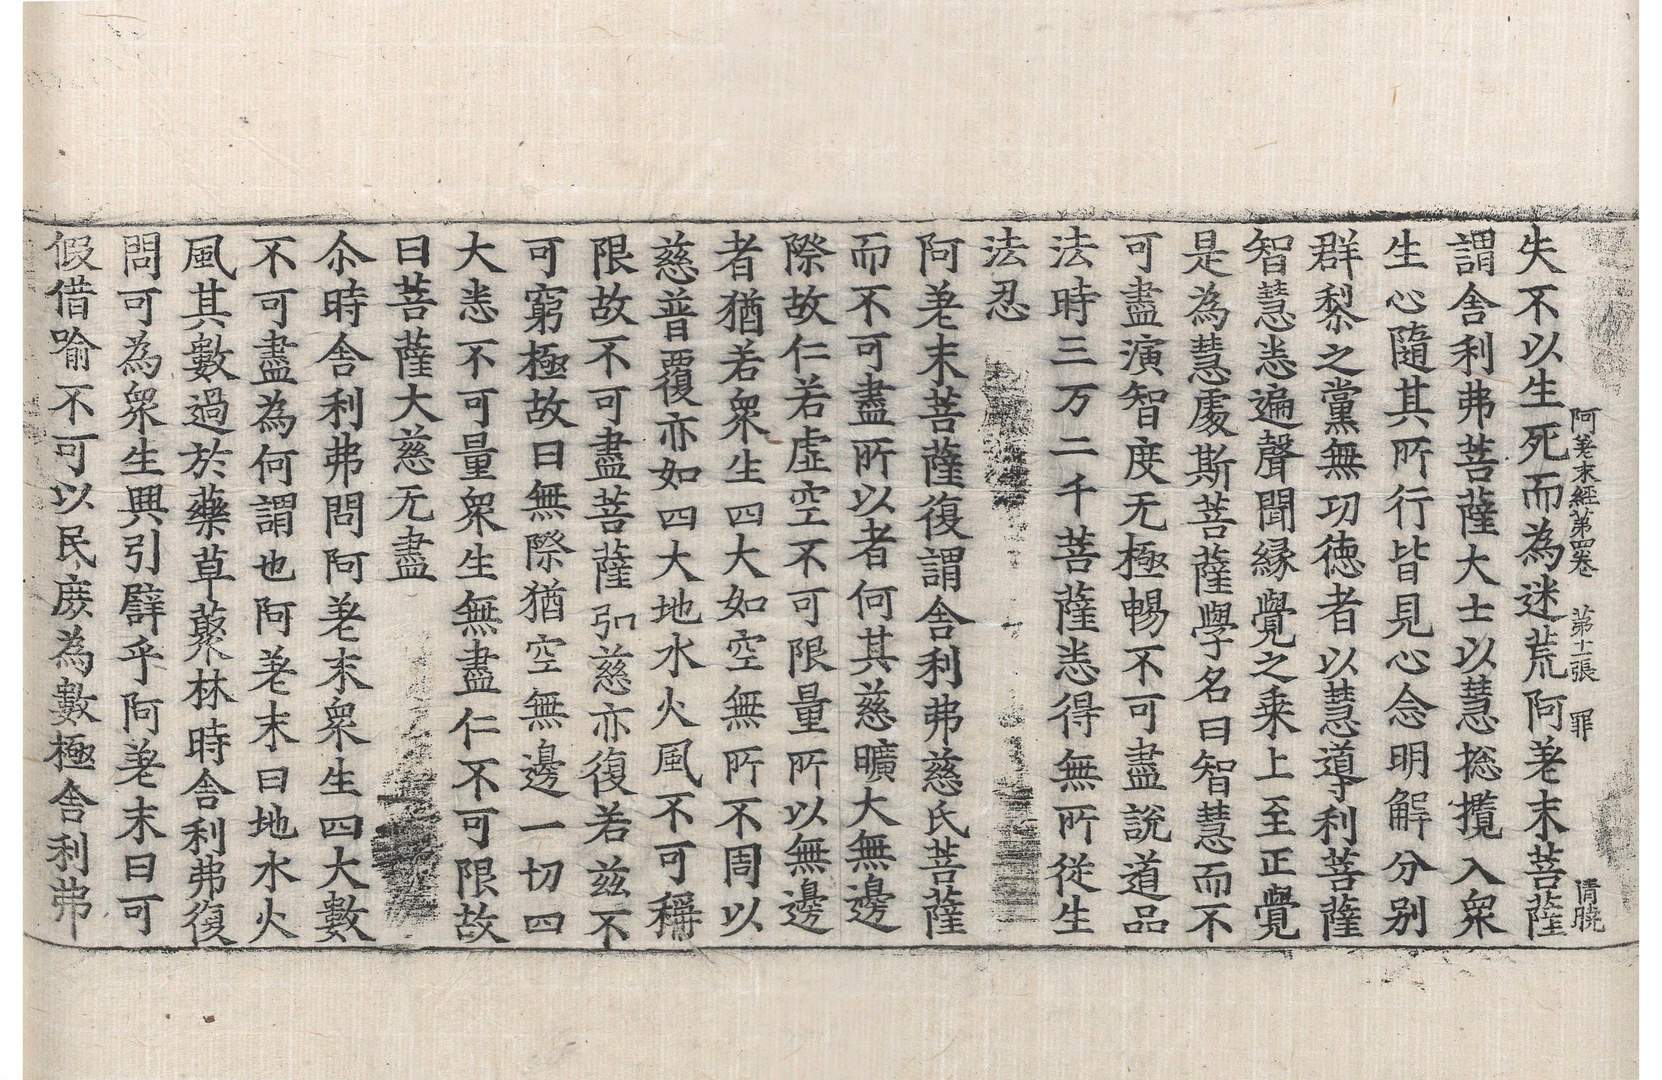 阿差末經第四卷　第十一張　罪　清曉
失不以生死而為迷荒阿差末菩薩
謂舍利弗菩薩大士以慧揔攬入衆
生心隨其所行皆見心念明解分别
群黎之黨無功徳者以慧導利菩薩
智慧悉遍聲聞縁覺之乗上至正覺
是為慧處斯菩薩學名曰智慧而不
可盡演智度无極暢不可盡說道品
法時三万二千菩薩悉得無所從生
法忍
阿差末菩薩復謂舍利弗慈氏菩薩
而不可盡所以者何其慈曠大無邊
際故仁若虛空不可限量所以無邊
者猶若衆生四大如空無所不周以
慈普覆亦如四大地水火風不可稱
限故不可盡菩薩弘慈亦復若兹不
可窮極故曰無際猶空無邊一切四
大悉不可量衆生無盡仁不可限故
曰菩薩大慈无盡
尒時舍利弗問阿差末衆生四大數
不可盡為何謂也阿差末曰地水火
風其數過於藥草藂林時舍利弗復
問可為衆生興引譬乎阿差末曰可
假借喻不可以民庶為數極舍利弗